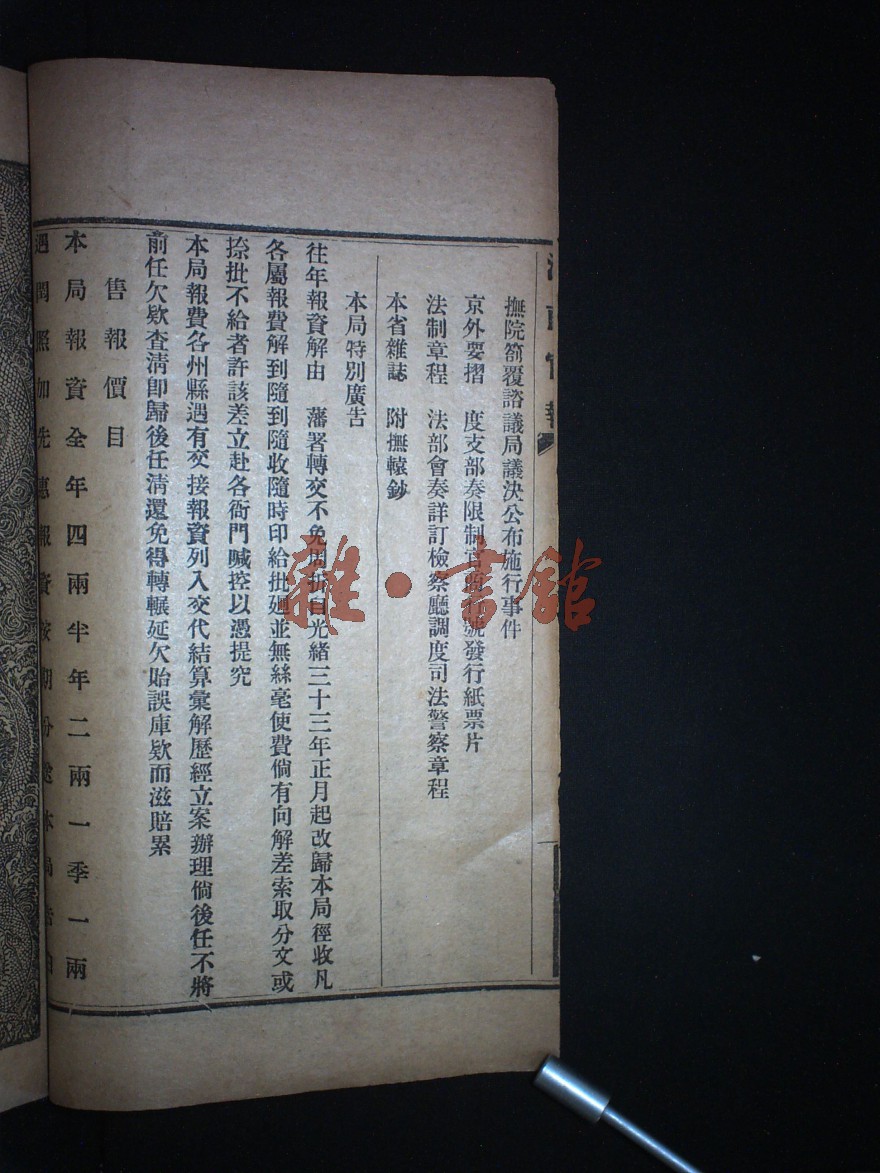 撫院劄覆諮議局議決公布施行事件
京外要摺 度支部奏限制官商行號發行紙票片
法制章程 法部會奏詳訂檢察廳調度司法警察章程
本省雜誌 附撫轅鈔
本局特別廣告
往年報資解由 藩署轉交不免周折自光緒三十三年正月起改歸本局徑收凡
各屬報費解到隨到隨收隨時印給批廻並無絲毫使費倘有向解差索取分文或
捺批不給者許該差立赴各衙門喊控以憑提究
本局報費各州縣遇有交接報資列入交代結算彙解歷經立案辦理倘後任不將
前任欠欵查清卽歸後任清還免得轉輾延欠貽誤庫欵而滋賠累
售報價目
本局報資全年四兩半年二兩一季一兩
遇閏照加先惠報資按期分送本局
雜·書館